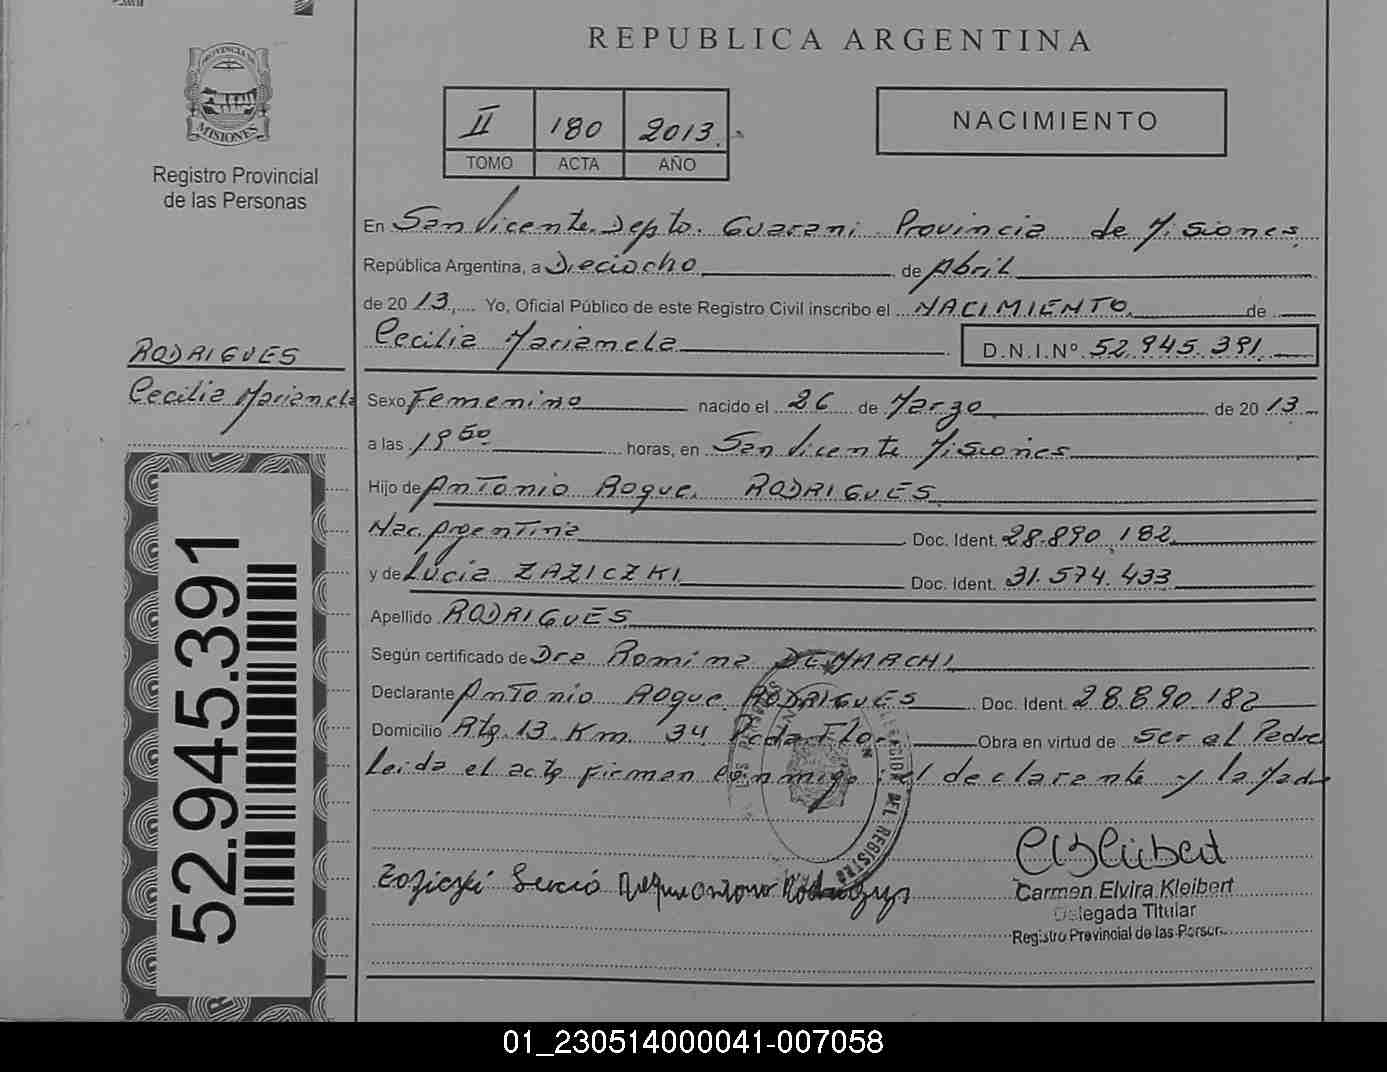 REPUBLICA ARGENTINA
PROVINCIA DE
MISIONES
Registro Provincial
de las Personas
II 180 2013
TOMO ACTA AÑO
NACIMIENTO
En San Vicente Depto. Guarani Provincia de Misiones
República Argentina, a Dieciocho de Abril
de 2013, Yo, Oficial Público de este Registro Civil inscribo el NACIMIENTO de
Cecilia Marianela D.N.I.Nº 52.945.391
RODRIGUES
Cecilia Marianela
Sexo Femenino nacido el 26 de Marzo de 2013
a las 19 50 horas, en San Vicente Misiones
Hijo de Antonio Roque RODRIGUES
Nac. Argentina Doc. Ident. 28.890.182
y de Lucia ZAZICZKI Doc. Ident. 31.574.433
Apellido RODRIGUES
Según certificado de Dra Romina DEMARCHI
Declarante Antonio Roque RODRIGUES Doc. Ident. 28.890.182
Domicilio Rta. 13 Km. 34 Pcda Flor Obra en virtud de ser el Padre
Leida el acta firman conmigo: el declarante y la Madre
52.945.391
DEL REGISTRO
Carmen Elvira Kleibert
Delegada Titular
Registro Provincial de las Person
01_230514000041-007058